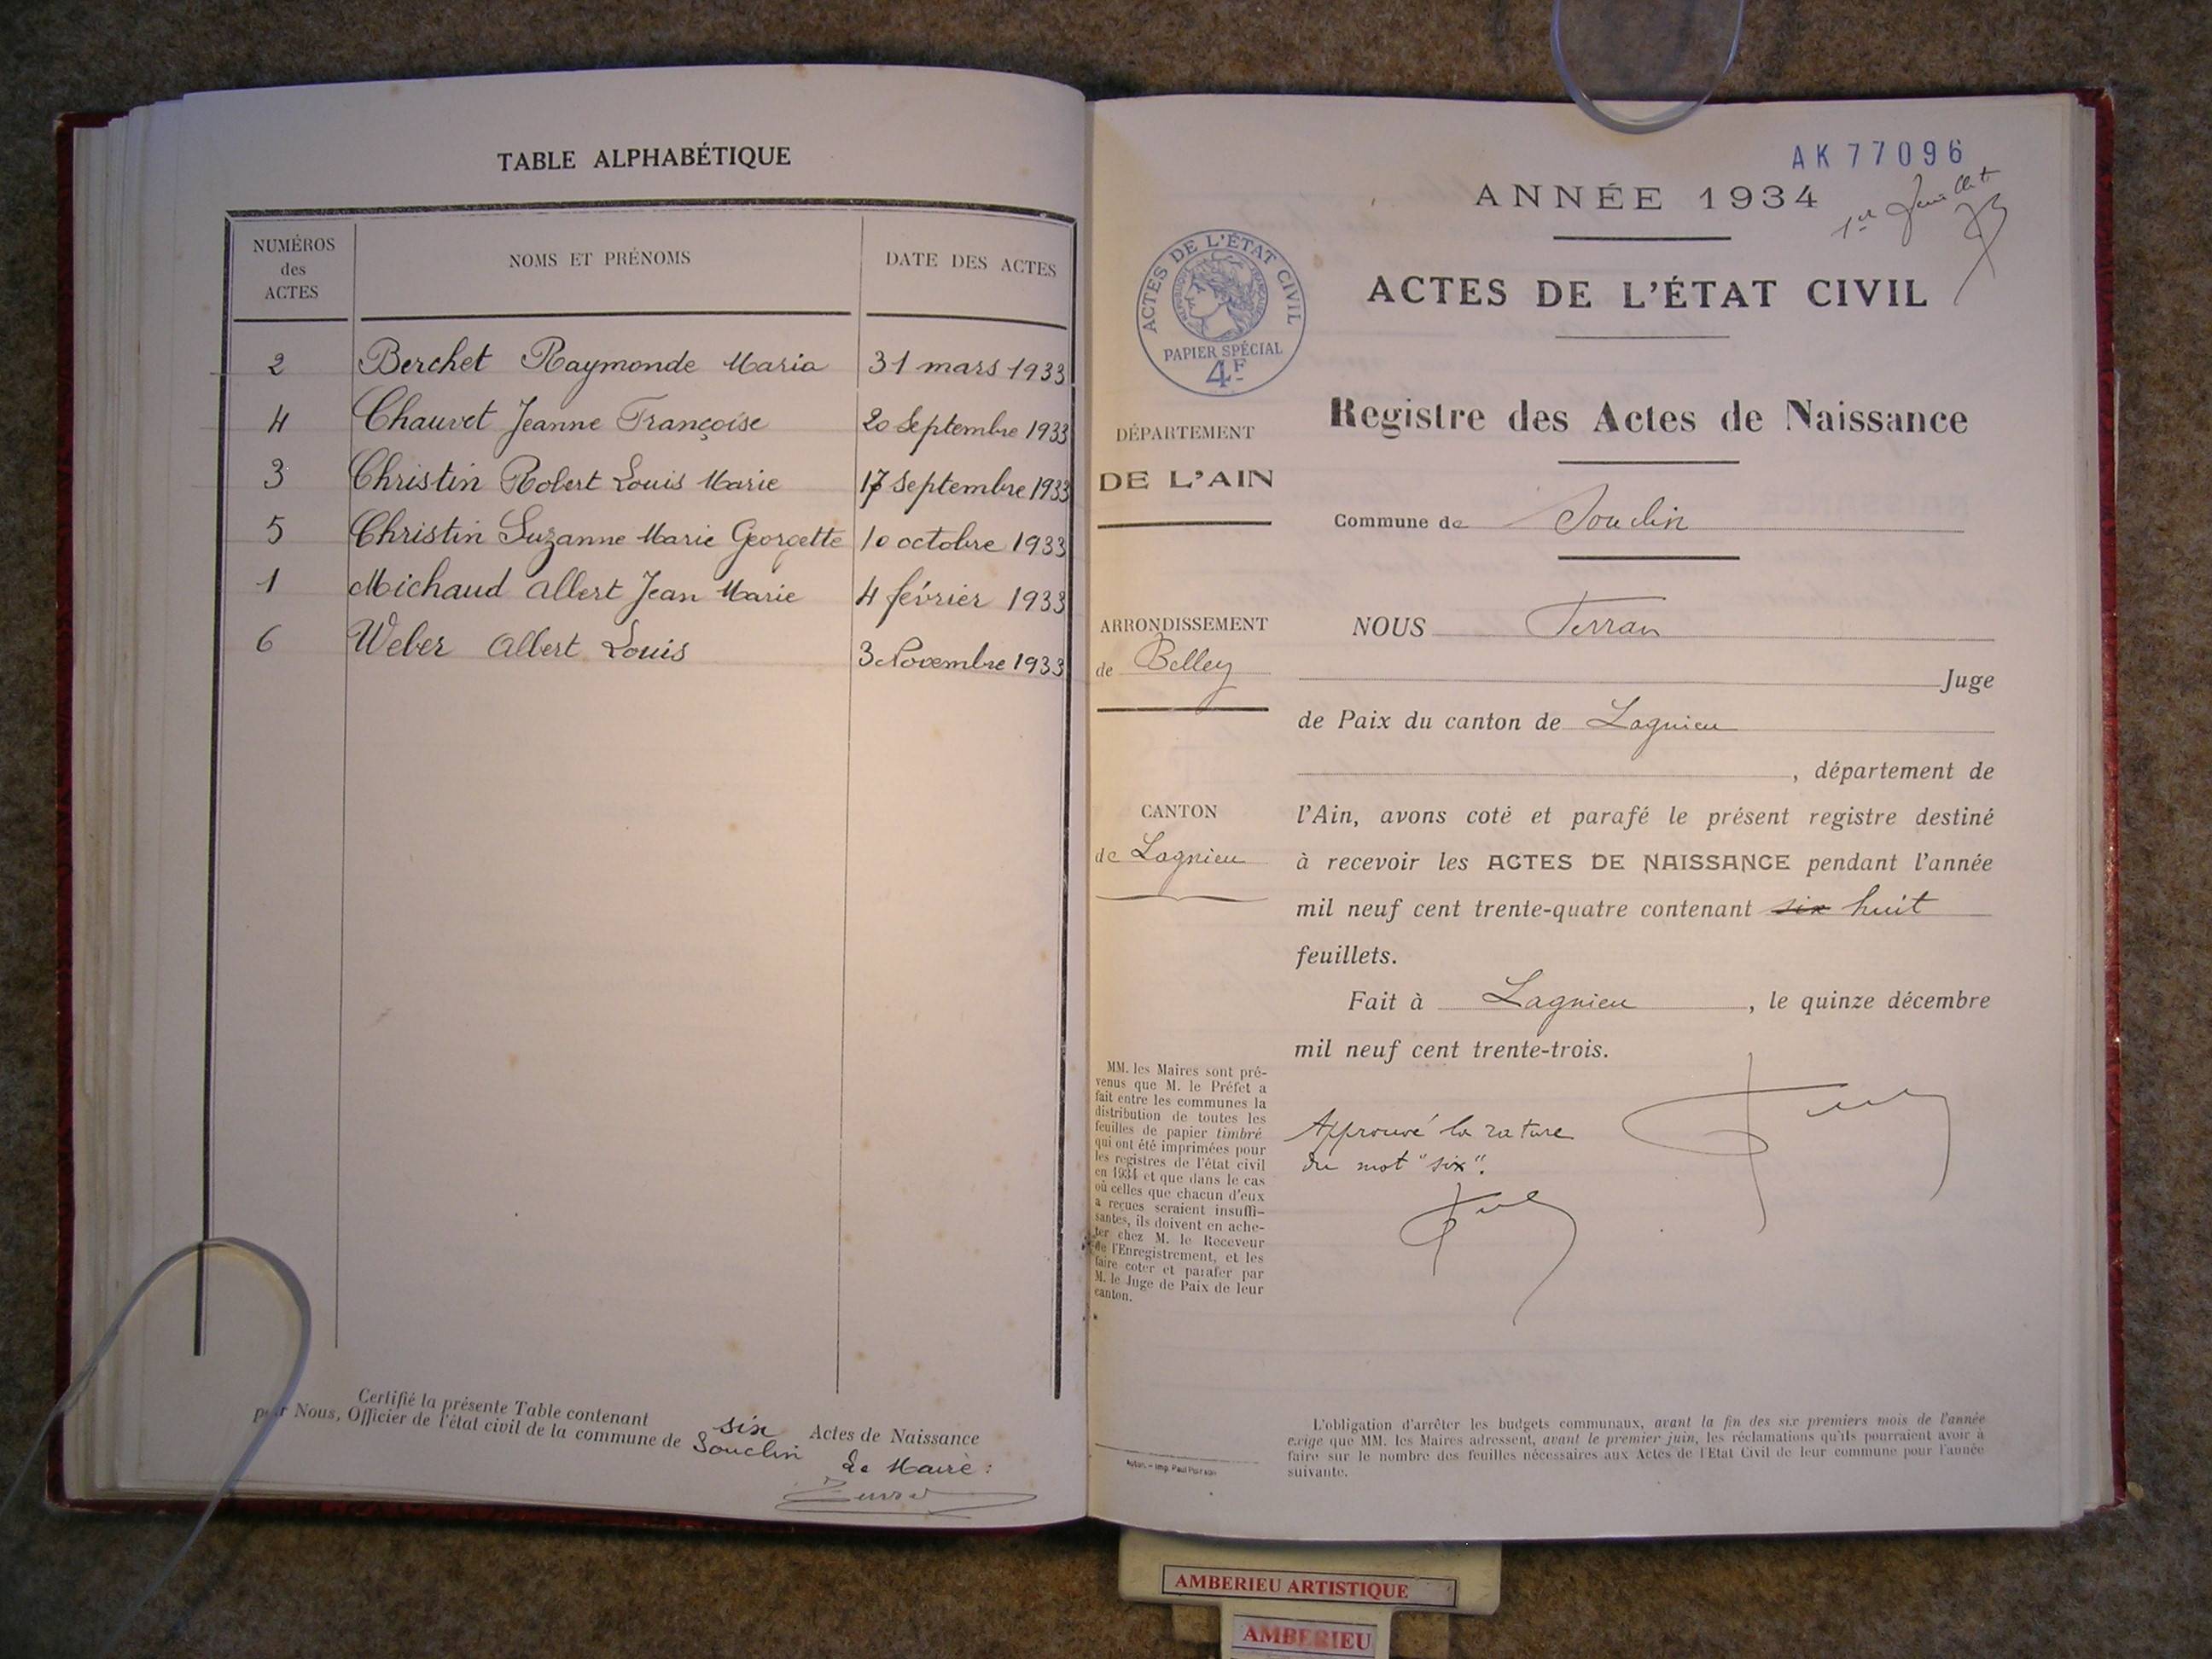 TABLE ALPHABÉTIQUE
NUMÉROS des ACTES
NOMS ET PRÉNOMS
DATE DES ACTES
2 Berchet Raymonde Maria 31 mars 1933
4 Chauvet Jeanne Françoise 20 Septembre 1933
3 Christin Robert Louis Marie 17 Septembre 1933
5 Christin Suzanne Marie Georgette 10 octobre 1933
1 Michaud Albert Jean Marie 4 février 1933
6 Weber Albert Louis 3 Novembre 1933
Certifié la présente Table contenant six Actes de Naissance
par Nous, Officier de l'état civil de la commune de Souclin
Le Maire :
AK 77096
ANNÉE 1934
1er feuillet
ACTES DE L'ÉTAT CIVIL
ACTES DE L'ÉTAT CIVIL
RÉPUBLIQUE FRANÇAISE
PAPIER SPÉCIAL
4F
Registre des Actes de Naissance
DÉPARTEMENT
DE L'AIN
Commune de Souclin
ARRONDISSEMENT
de Belley
NOUS Ferran
Juge
de Paix du canton de Lagnieu
, département de
CANTON
de Lagnieu
l'Ain, avons coté et parafé le présent registre destiné
à recevoir les ACTES DE NAISSANCE pendant l'année
mil neuf cent trente-quatre contenant six huit
feuillets.
Fait à Lagnieu, le quinze décembre
mil neuf cent trente-trois.
Approuvé la rature
du mot "six".
MM. les Maires sont pré-
venus que M. le Préfet a
fait entre les communes la
distribution de toutes les
feuilles de papier timbré
qui ont été imprimées pour
les registres de l'état civil
en 1934 et que dans le cas
où celles que chacun d'eux
a reçues seraient insuffi-
santes, ils doivent en ache-
ter chez M. le Receveur
de l'Enregistrement, et les
faire coter et parafer par
M. le Juge de Paix de leur
canton.
L'obligation d'arrêter les budgets communaux, avant la fin des six premiers mois de l'année
exige que MM. les Maires adressent, avant le premier juin, les réclamations qu'ils pourraient avoir à
faire sur le nombre des feuilles nécessaires aux Actes de l'Etat Civil de leur commune pour l'année
suivante.
AMBERIEU ARTISTIQUE
AMBERIEU